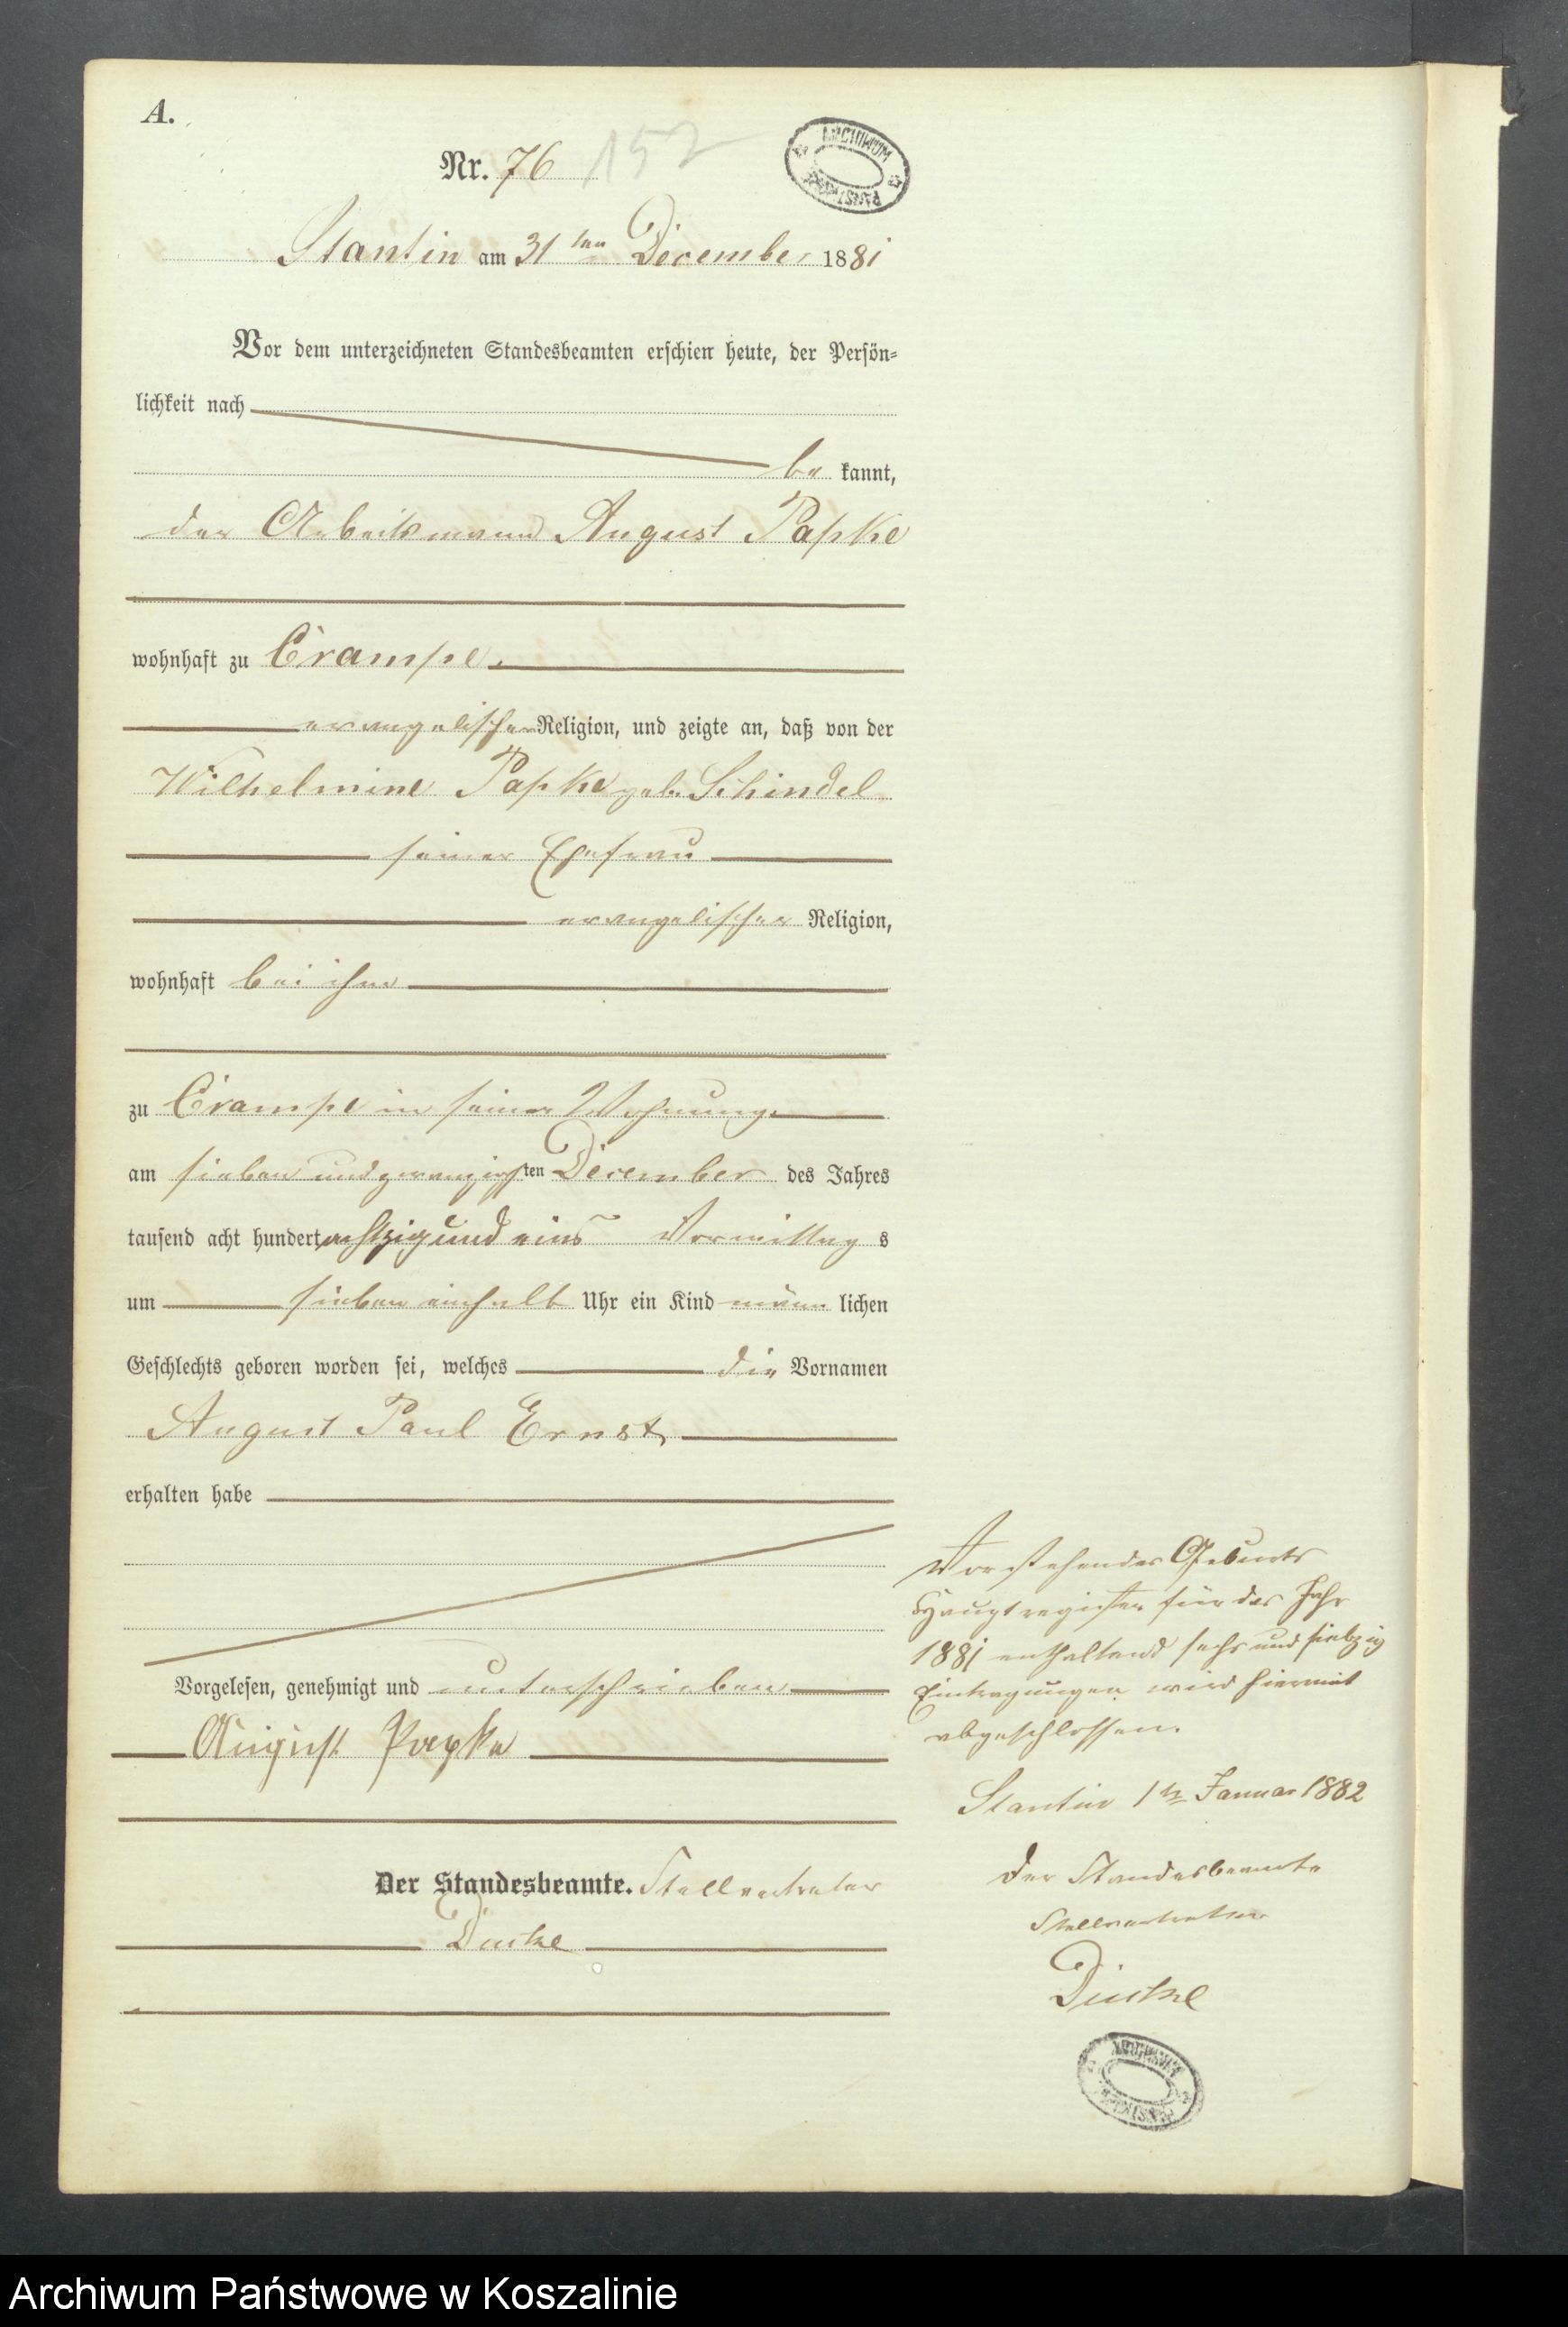 A.
Nr. 76 152
ARCHIWUM PAŃSTWOWE
Stantin am 31ten December 1881
Vor dem unterzeichneten Standesbeamten erschien heute, der Persön=
lichkeit nach
be kannt,
der Arbeitsmann August Papke
wohnhaft zu Crampe.
evangelischer Religion, und zeigte an, daß von der
Wilhelmine Papke geb. Schindel
seiner Ehefrau
evangelischer Religion,
wohnhaft bei ihm
zu Crampe in seiner Wohnung.
am sieben und zwanzigsten December des Jahres
tausend acht hundert achtzig und eins Vormittag s
um sieben einhalb Uhr ein Kind männ lichen
Geschlechts geboren worden sei, welches die Vornamen
August Paul Ernst,
erhalten habe
Vorgelesen, genehmigt und unterschrieben
August Papke
Der Standesbeamte. Stellvertreter
Vorstehendes Geburts
Hauptregister für das Jahr
1881 enthaltend sechs und siebzig
Eintragungen wird hiermit
abgeschlossen.
Stantin 1ten Januar 1882
Der Standesbeamte
Stellvertreter
Archiwum Państwowe w Koszalinie